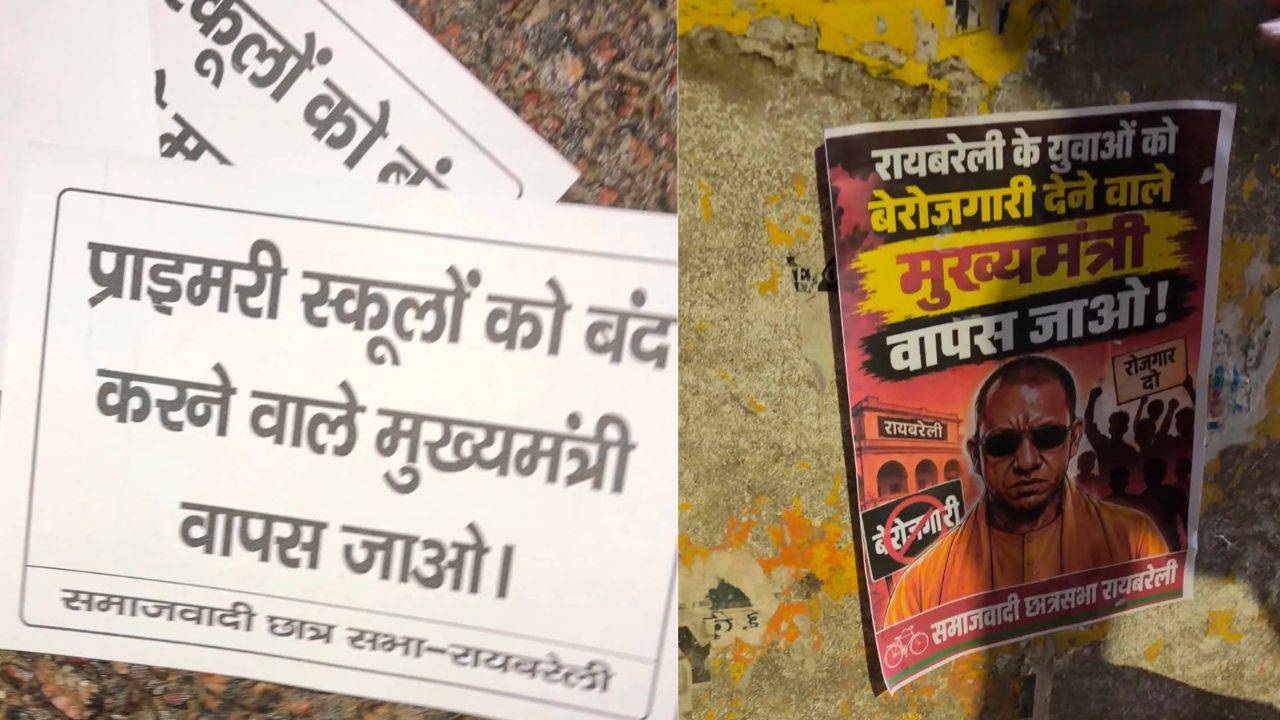 स्कूलों को बं
प्राइमरी स्कूलों को बंद
करने वाले मुख्यमंत्री
वापस जाओ।
समाजवादी छात्र सभा-रायबरेली
रायबरेली के युवाओं को
बेरोजगारी देने वाले
मुख्यमंत्री
वापस जाओ!
रोजगार
दो
रायबरेली
बेरोजगारी
समाजवादी छात्रसभा रायबरेली